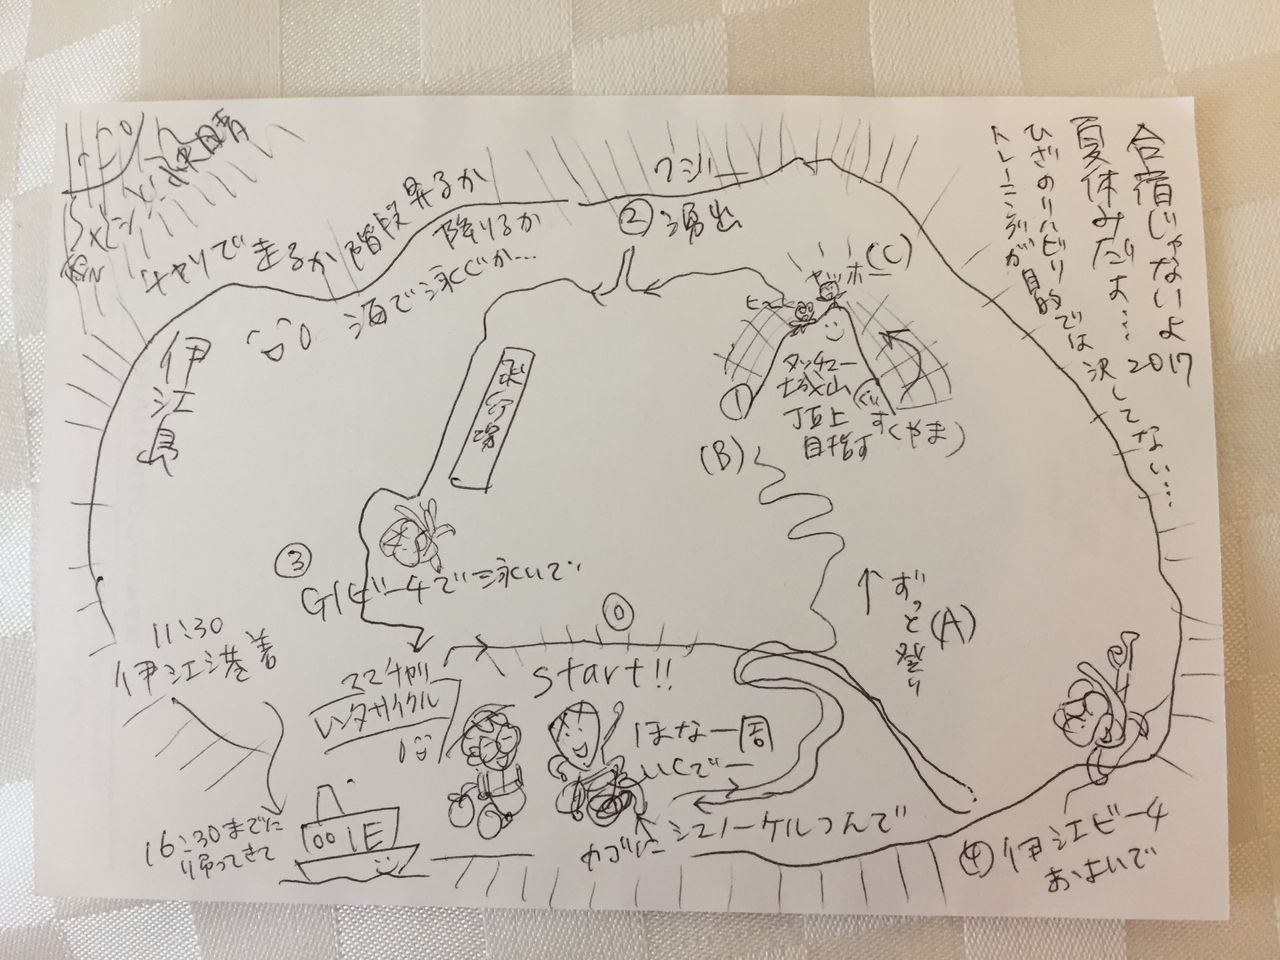 合宿じゃないよ
夏休みだよ…2017
ひざのリハビリ的では決してない…
トレーニングが目的では
ピーカン
快晴
チャリで走るか階段昇るか
降りるか
海で泳ぐか…
ワジー
② 湧出
ヤッホー (C)
ヒュー
タッチュー
城山
頂上
目指す
(ぐすくやま)
①
(B)
伊江島
③
G1ビーチで泳いで
⓪
start!!
ずっと登り
(A)
11:30
伊江港着
ママチャリ
レンタサイクル
ほな一周
いくでー
カゴにシュノーケルつんで
16:30までに
帰ってきて
IE
④ 伊江ビーチ
およいで